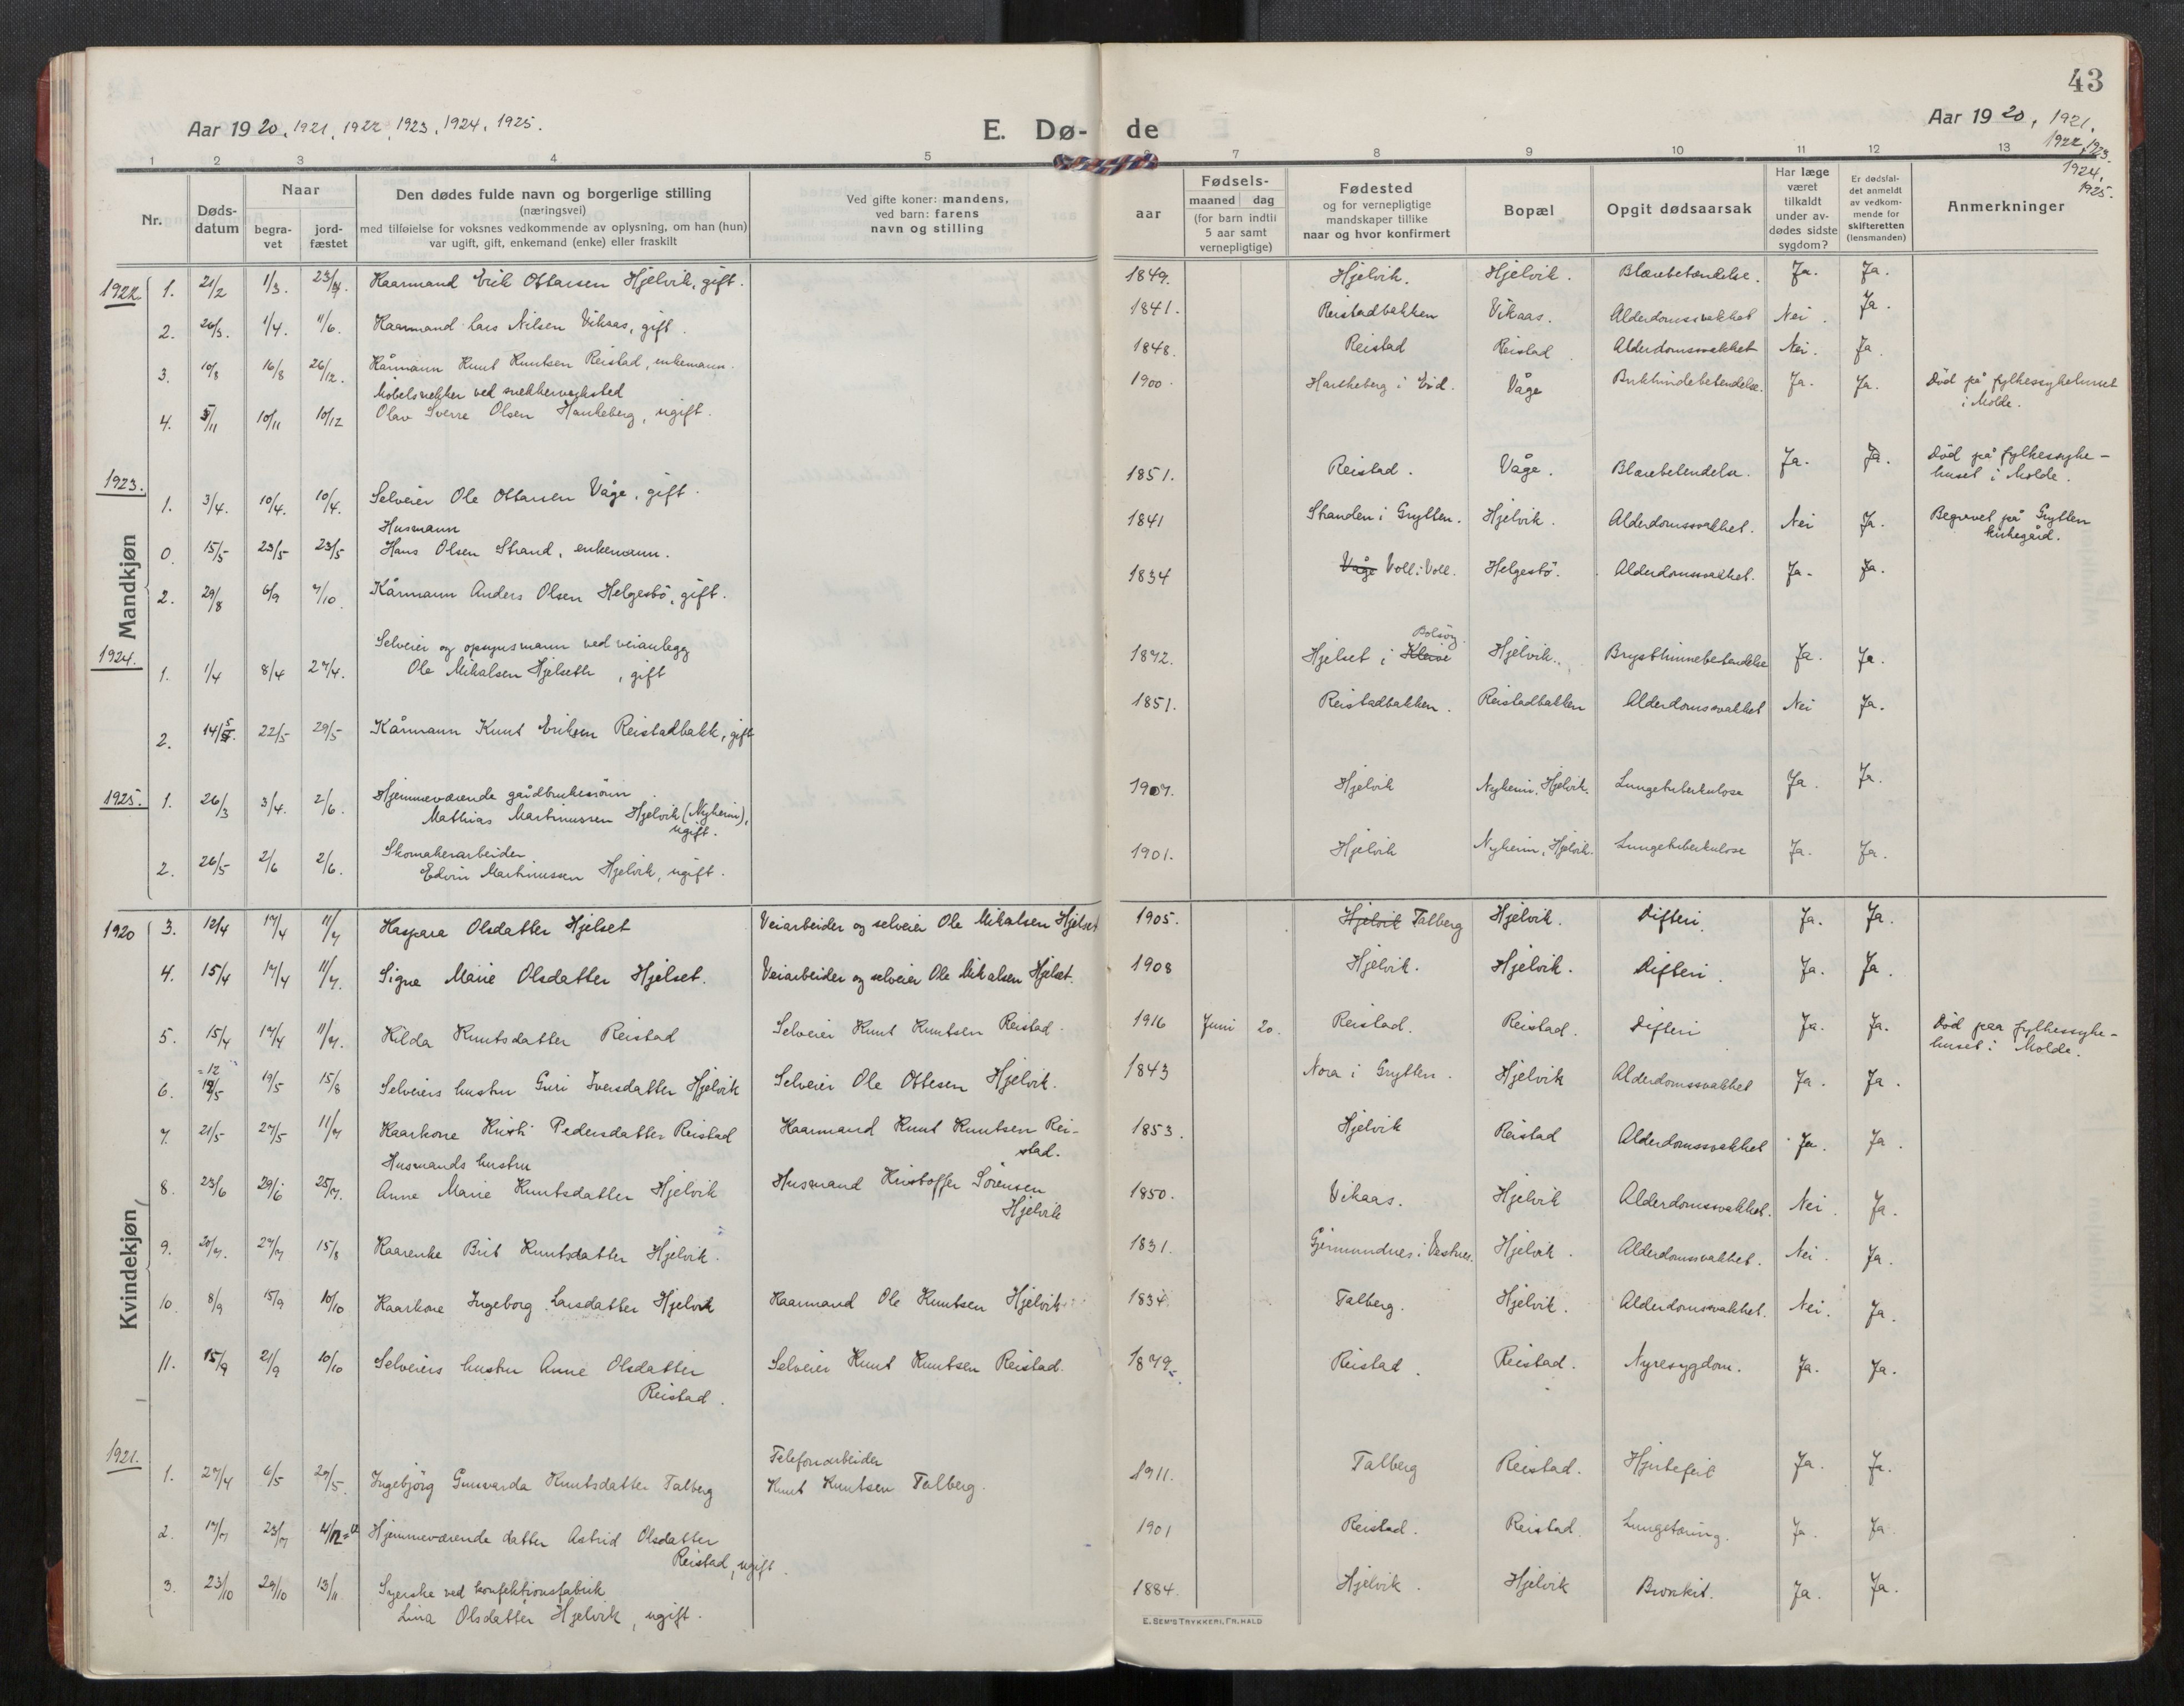 43
Aar 1920, 1921, 1922, 1923, 1924, 1925.
E. Dø- de
Aar 1920, 1921,
1922, 1923.
1924,
1925.
1 2 3 4 5 6 7 8 9 10 11 12 13
Nr.
Døds-
datum
Naar
begra-
vet
jord-
fæstet
Den dødes fulde navn og borgerlige stilling
(næringsvei)
med tilføielse for voksnes vedkommende av oplysning, om han (hun)
var ugift, gift, enkemand (enke) eller fraskilt
Ved gifte koner: mandens,
ved barn: farens
navn og stilling
aar
Fødsels-
maaned dag
(for barn indtil
5 aar samt
vernepligtige)
Fødested
og for vernepligtige
mandskaper tillike
naar og hvor konfirmert
Bopæl
Opgit dødsaarsak
Har læge
været
tilkaldt
under av-
dødes sidste
sygdom?
Er dødsfal-
det anmeldt
av vedkom-
mende for
skifteretten
(lensmanden)
Anmerkninger
Mandkjøn
1922. 1. 21/2 1/3. 23/4. Kaarmand Erik Ottarsen Hjelvik, gift. 1849. Hjelvik. Hjelvik. Blærebetændelse. Ja. Ja.
2. 26/3. 1/4. 11/6. Kaarmand Lars Nilsen Vikaas, gift. 1841. Reistadbakken Vikaas. Alderdomssvakhet Nei. Ja.
3. 10/8 16/8 26/12. Kårmann Knut Knutsen Reistad, enkemann. 1848. Reistad Reistad. Alderdomssvakhet Nei. Ja.
Møbelsnekker ved snekkerverksted
4. 5/11 10/11 10/12 Olav Sverre Olsen Haukeberg, ugift. 1900. Haukeberg i Eid. Våge Bukhindebetendelse. Ja. Ja. Död på fylkessykehuset
i Molde.
1923.
1. 3/4. 10/4. 10/4. Selveier Ole Ottarsen Våge, gift. 1851. Reistad. Våge. Blærebetendelse. Ja. Ja. Död på fylkessyke-
huset i Molde.
Husmann
0. 15/5 23/5 23/5 Hans Olsen Strand, enkemann. 1841 Stranden i Grytten. Hjelvik. Alderdomssvakhet. Nei Ja. Begravet på Grytten
kirkegård.
2. 29/8 6/9 7/10. Kårmann Anders Olsen Helgestö, gift. 1834 Våge Voll i Voll. Helgestö. Alderdomssvakhet. Ja. Ja.
1924.
Selveier og opsynsmann ved veianlegg
1. 1/4 8/4 27/4. Ole Mikalsen Hjelseth, gift 1872. Hjelset i Kleive Bolsöy. Hjelvik. Brysthinnebetendelse Ja. Ja.
2. 14/5. 22/5 29/5 Kårmann Knut Eriksen Reistadbakk, gift 1851. Reistadbakken. Reistadbakken Alderdomssvakhet Nei Ja.
1925. 1. 26/3 3/4. 2/6. Hjemmeværende gårdbrukersönn
Mathias Martinussen Hjelvik (Nyheim),
ugift. 1907. Hjelvik Nyheim, Hjelvik. Lungetuberkulose Ja. Ja.
Skomakerarbeider
2. 26/5 2/6 2/6. Edvin Martinussen Hjelvik, ugift. 1901. Hjelvik Nyheim, Hjelvik. Lungetuberkulose Ja. Ja.
Kvindekjøn
1920 3. 12/4 17/4 11/7 Kaspara Olsdatter Hjelset Veiarbeider og selveier Ole Mikalsen Hjelset 1905. Hjelvik Talberg Hjelvik. Difteri. Ja. Ja.
4. 15/4 17/4 11/7. Signe Marie Olsdatter Hjelset. Veiarbeider og selveier Ole Mikalsen Hjelset. 1908 Hjelvik. Hjelvik. Difteri. Ja. Ja.
5. 15/4 17/4 11/7. Hilda Knutsdatter Reistad Selveier Knut Knutsen Reistad. 1916 Juni 20. Reistad. Reistad. Difteri Ja. Ja. Död paa fylkessyke-
huset i Molde.
=12
6. 12/5 19/5 15/8 Selveiers hustru Guri Iversdatter Hjelvik Selveier Ole Ottesen Hjelvik. 1843 Nora i Grytten. Hjelvik Alderdomssvakhet Ja. Ja.
7. 21/5 27/5 11/7 Kaarkone Kristi Pedersdatter Reistad Kaarmand Knut Knutsen Rei-
stad. 1853. Hjelvik Reistad Alderdomssvakhet Ja. Ja.
Husmands hustru
8. 23/6 29/6 25/7. Anne Marie Knutsdatter Hjelvik Husmand Kristoffer Sörensen
Hjelvik 1850. Vikaas. Hjelvik Alderdomssvakhet. Nei. Ja.
9. 20/7. 27/7 15/8 Kaarenke Brit Knutsdatter Hjelvik. 1831. Gjermundnes i Vestnes. Hjelvik. Alderdomssvakhet. Nei. Ja.
10. 8/9 15/9 10/10 Kaarkone Ingeborg Larsdatter Hjelvik Kaarmand Ole Knutsen Hjelvik 1834. Talberg. Hjelvik. Alderdomssvakhet. Nei. Ja.
11. 15/9 21/9 10/10 Selveiers hustru Anne Olsdatter
Reistad. Selveier Knut Knutsen Reistad. 1879. Reistad. Reistad. Nyresygdom. Ja. Ja.
1921.
Telefonarbeider
1. 27/4 6/5 29/5. Ingebjörg Gunvarda Knutsdatter Talberg Knut Knutsen Talberg. 1911. Talberg Reistad. Hjertefeil Ja. Ja.
2. 17/7 23/7 4/12 Hjemmeværende datter Astrid Olsdatter
Reistad, ugift. 1901 Reistad. Reistad. Lungetæring. Ja. Ja
3. 23/10 29/10 13/11. Syerske ved konfektionsfabrik
Lina Olsdatter Hjelvik, ugift. 1884. Hjelvik. Hjelvik Bronkit. Ja. Ja.
E. SEM'S TRYKKERI, FR.HALD